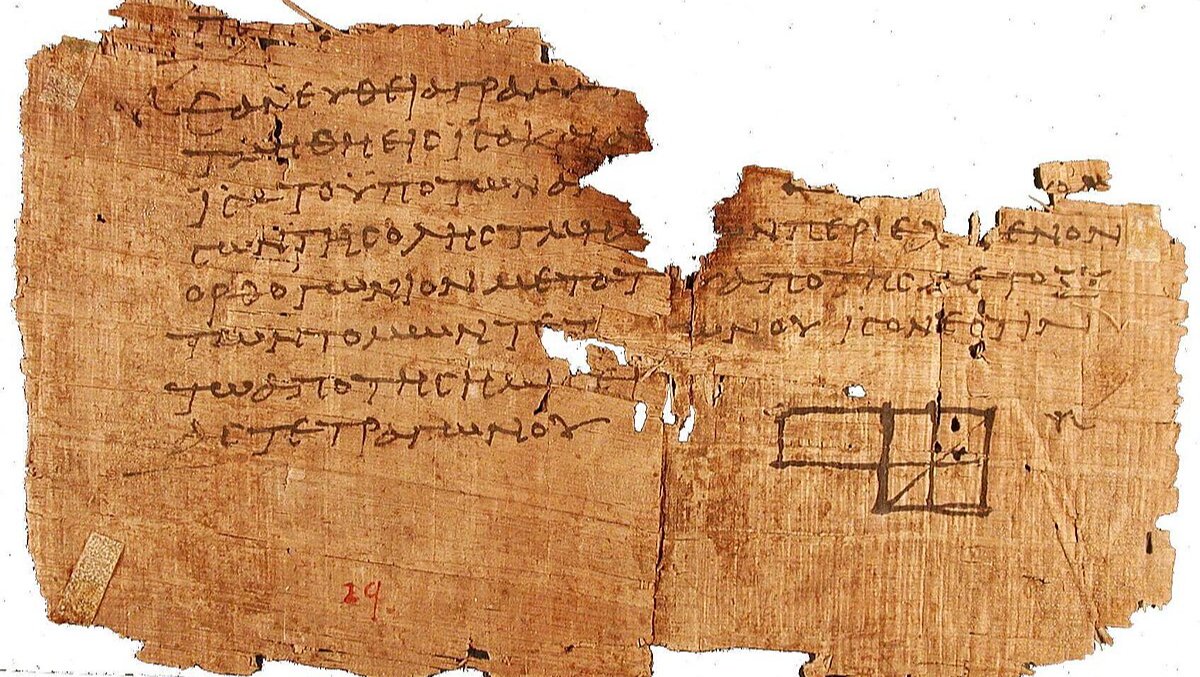 ΕΑΝ ΕΥΘΕΙΑ ΓΡΑΜΜ
ΤΜΗΘΗ ΕΙϹ ΙϹΑ Κ
ΙϹΑ ΤΟ ΥΠΟ ΤΩΝ ΑΝ
ϹΩΝ ΤΗϹ ΟΛΗϹ ΤΜΗΜ ΩΝ ΠΕΡΙΕΧΟΜΕΝΟΝ
ΟΡΘΟΓΩΝΙΟΝ ΜΕΤΑ ΤΟΥ ΑΠΟ ΤΗϹ ΜΕΤΟΞΥ
ΤΩΝ ΤΟΜΩΝ ΤΕΤ ΩΝΟΥ ΙϹΟΝ ΕϹΤΙΝ
ΤΩ ΑΠΟ ΤΗϹ ΗΜΙϹΕΙ
ΑϹ ΤΕΤΡΑΓΩΝΟΥ
29